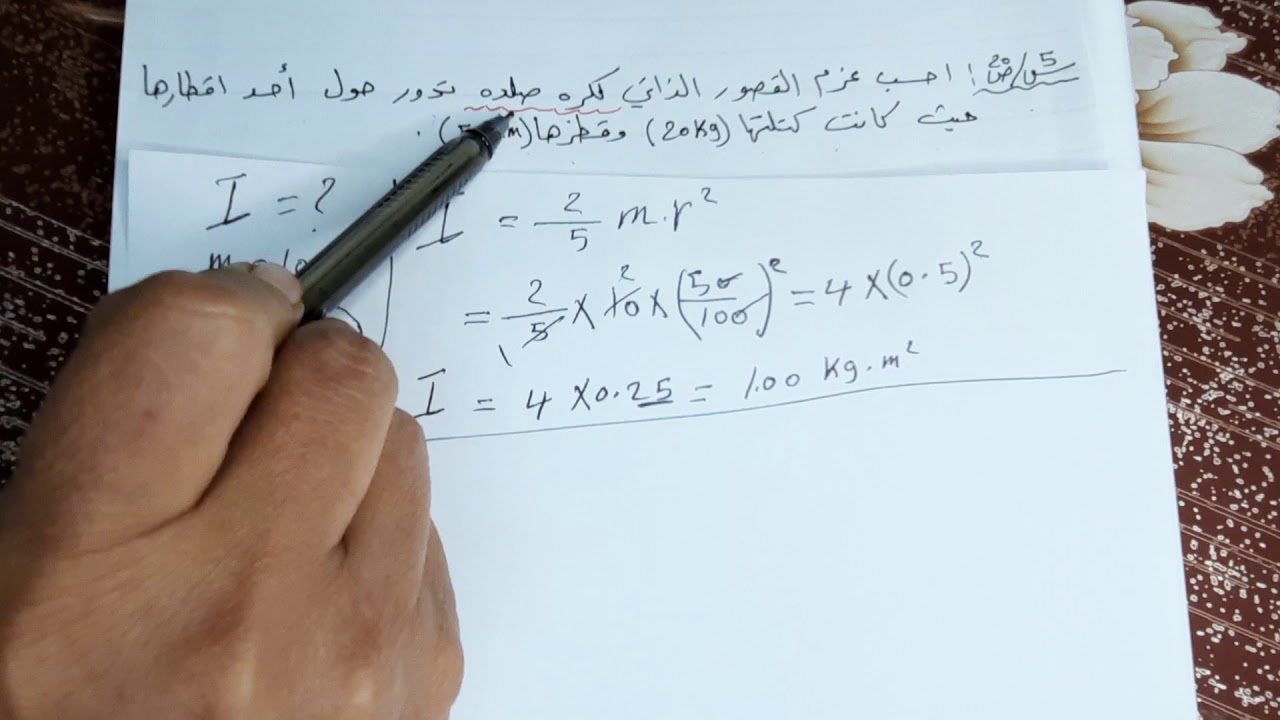 س5/ص20: احسب عزم القصور الذاتي لكره صلده تدور حول أحد اقطارها
حيث كانت كتلتها (20Kg) وقطرها (m) .
I = ?
I = 2/5 m.r²
= 2/5 × 10 2 × (50/100)² = 4 × (0.5)²
I = 4 × 0.25 = 1.00 Kg.m²